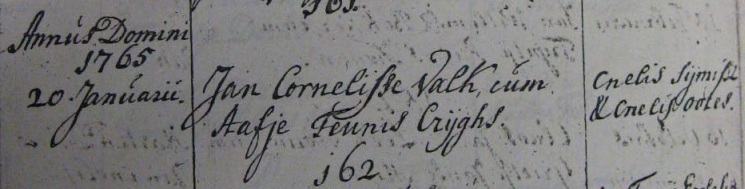 161.
Annus Domini
1765
20 Januarii.
Jan Cornelisse Valk, cum
Aafje Teunis Crijghs.
Cnelis Sijmisse
& Cnelis ooles.
162